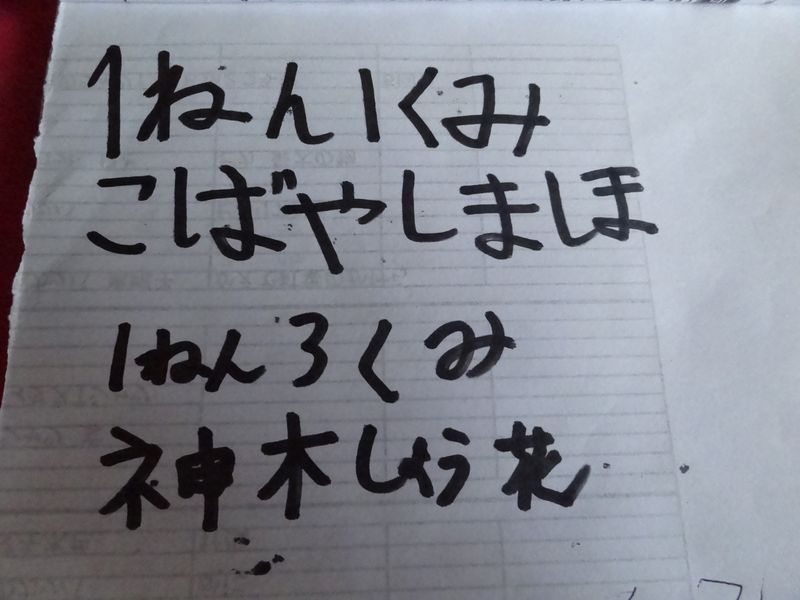 1ねん1くみ
こばやしまほ
1ねん3くみ
神木しょう花